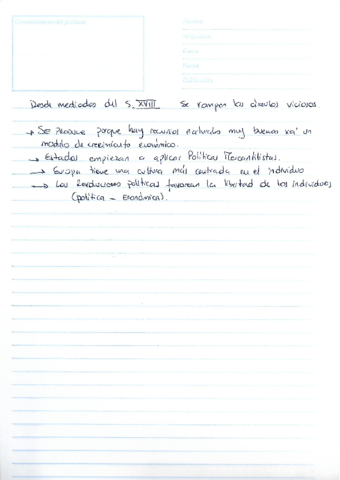 Desde mediados del S. XVIII Se rompen los círculos viciosos
→ SE PRODUCE porque hay recursos naturales muy buenos xa' un
modelo de crecimiento económico.
→ Estados empiezan a aplicar Políticas Mercantilistas.
→ Europa tiene una cultura más centrada en el individuo
→ Las Revoluciones políticas favorecen la libertad de los individuos
(política - Económica).